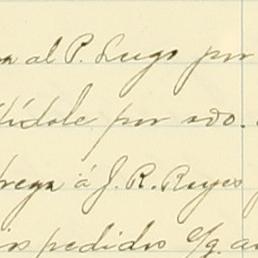 al P. Lugo por
tídole por svo.
trega á J. R. Reyes
pedidos c/g. a